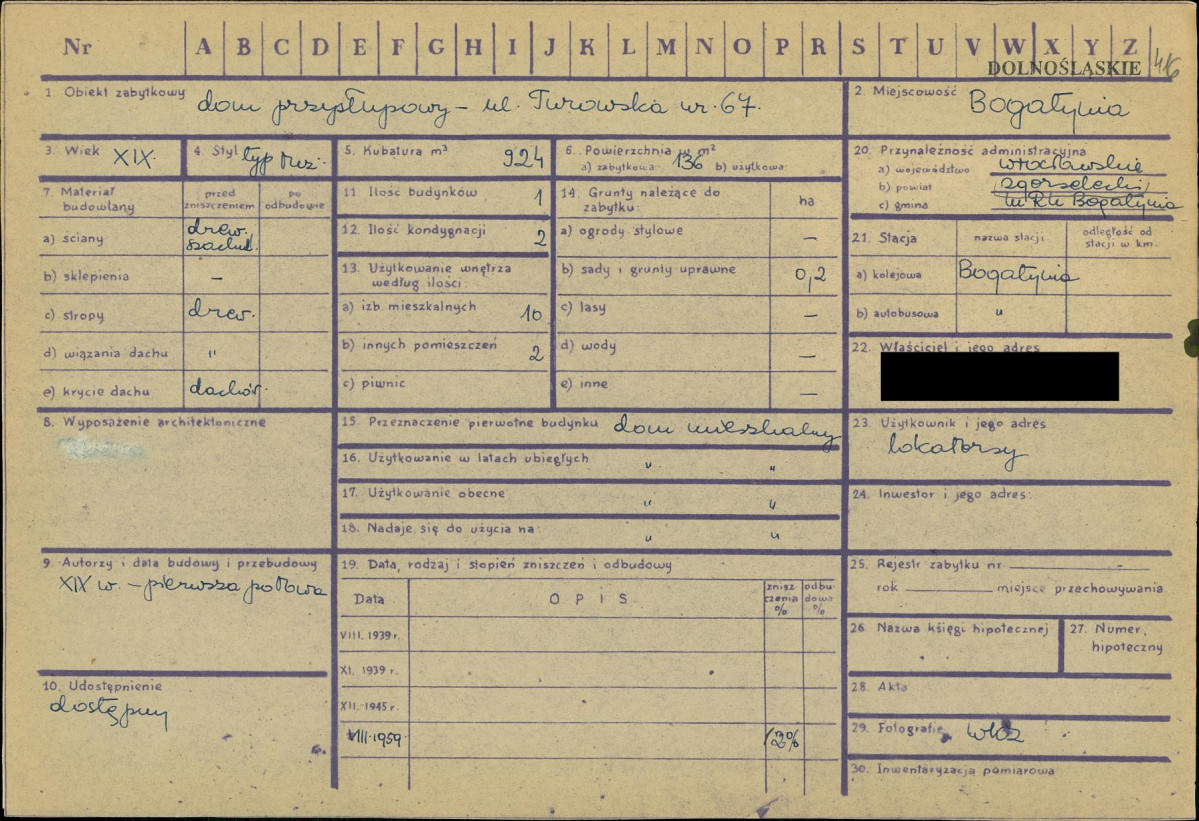 Nr A B C D E F G H I J K L M N O P R S T U V W X Y Z
DOLNOŚLĄSKIE
416
1. Obiekt zabytkowy dom przysłupowy – ul. Turowska nr. 67.
2. Miejscowość Bogatynia
3. Wiek XIX.
4. Styl typ łuż.
5. Kubatura m³ 924
6. Powierzchnia w m²
a) zabytkowa 136 b) użytkowa
7. Materiał budowlany
przed zniszczeniem
po odbudowie
a) ściany drew. szachul.
b) sklepienia –
c) stropy drew.
d) wiązania dachu "
e) krycie dachu dachów.
8. Wyposażenie architektoniczne
9. Autorzy i data budowy i przebudowy
XIX w. – pierwsza połowa
10. Udostępnienie
dostępny
11. Ilość budynków 1
12. Ilość kondygnacji 2
13. Użytkowanie wnętrza
według ilości:
a) izb mieszkalnych 10
b) innych pomieszczeń 2
c) piwnic
14. Grunty należące do
zabytku: ha
a) ogrody stylowe –
b) sady i grunty uprawne 0,2
c) lasy –
d) wody –
e) inne –
15. Przeznaczenie pierwotne budynku dom mieszkalny
16. Użytkowanie w latach ubiegłych " "
17. Użytkowanie obecne " "
18. Nadaje się do użycia na: " "
19. Data, rodzaj i stopień zniszczeń i odbudowy
Data OPIS zniszczenia % odbudowa %
VIII. 1939 r.
XI. 1939 r.
XII. 1945 r.
VIII.1959.
20. Przynależność administracyjna
a) województwo wrocławskie
b) powiat zgorzelecki
c) gmina Bogatynia
21. Stacja nazwa stacji odległość od stacji w km.
a) kolejowa Bogatynia
b) autobusowa "
22. Właściciel i jego adres
23. Użytkownik i jego adres
lokatorzy
24. Inwestor i jego adres:
25. Rejestr zabytku nr
rok miejsce przechowywania
26. Nazwa księgi hipotecznej
27. Numer hipoteczny
28. Akta
29. Fotografie
30. Inwentaryzacja pomiarowa